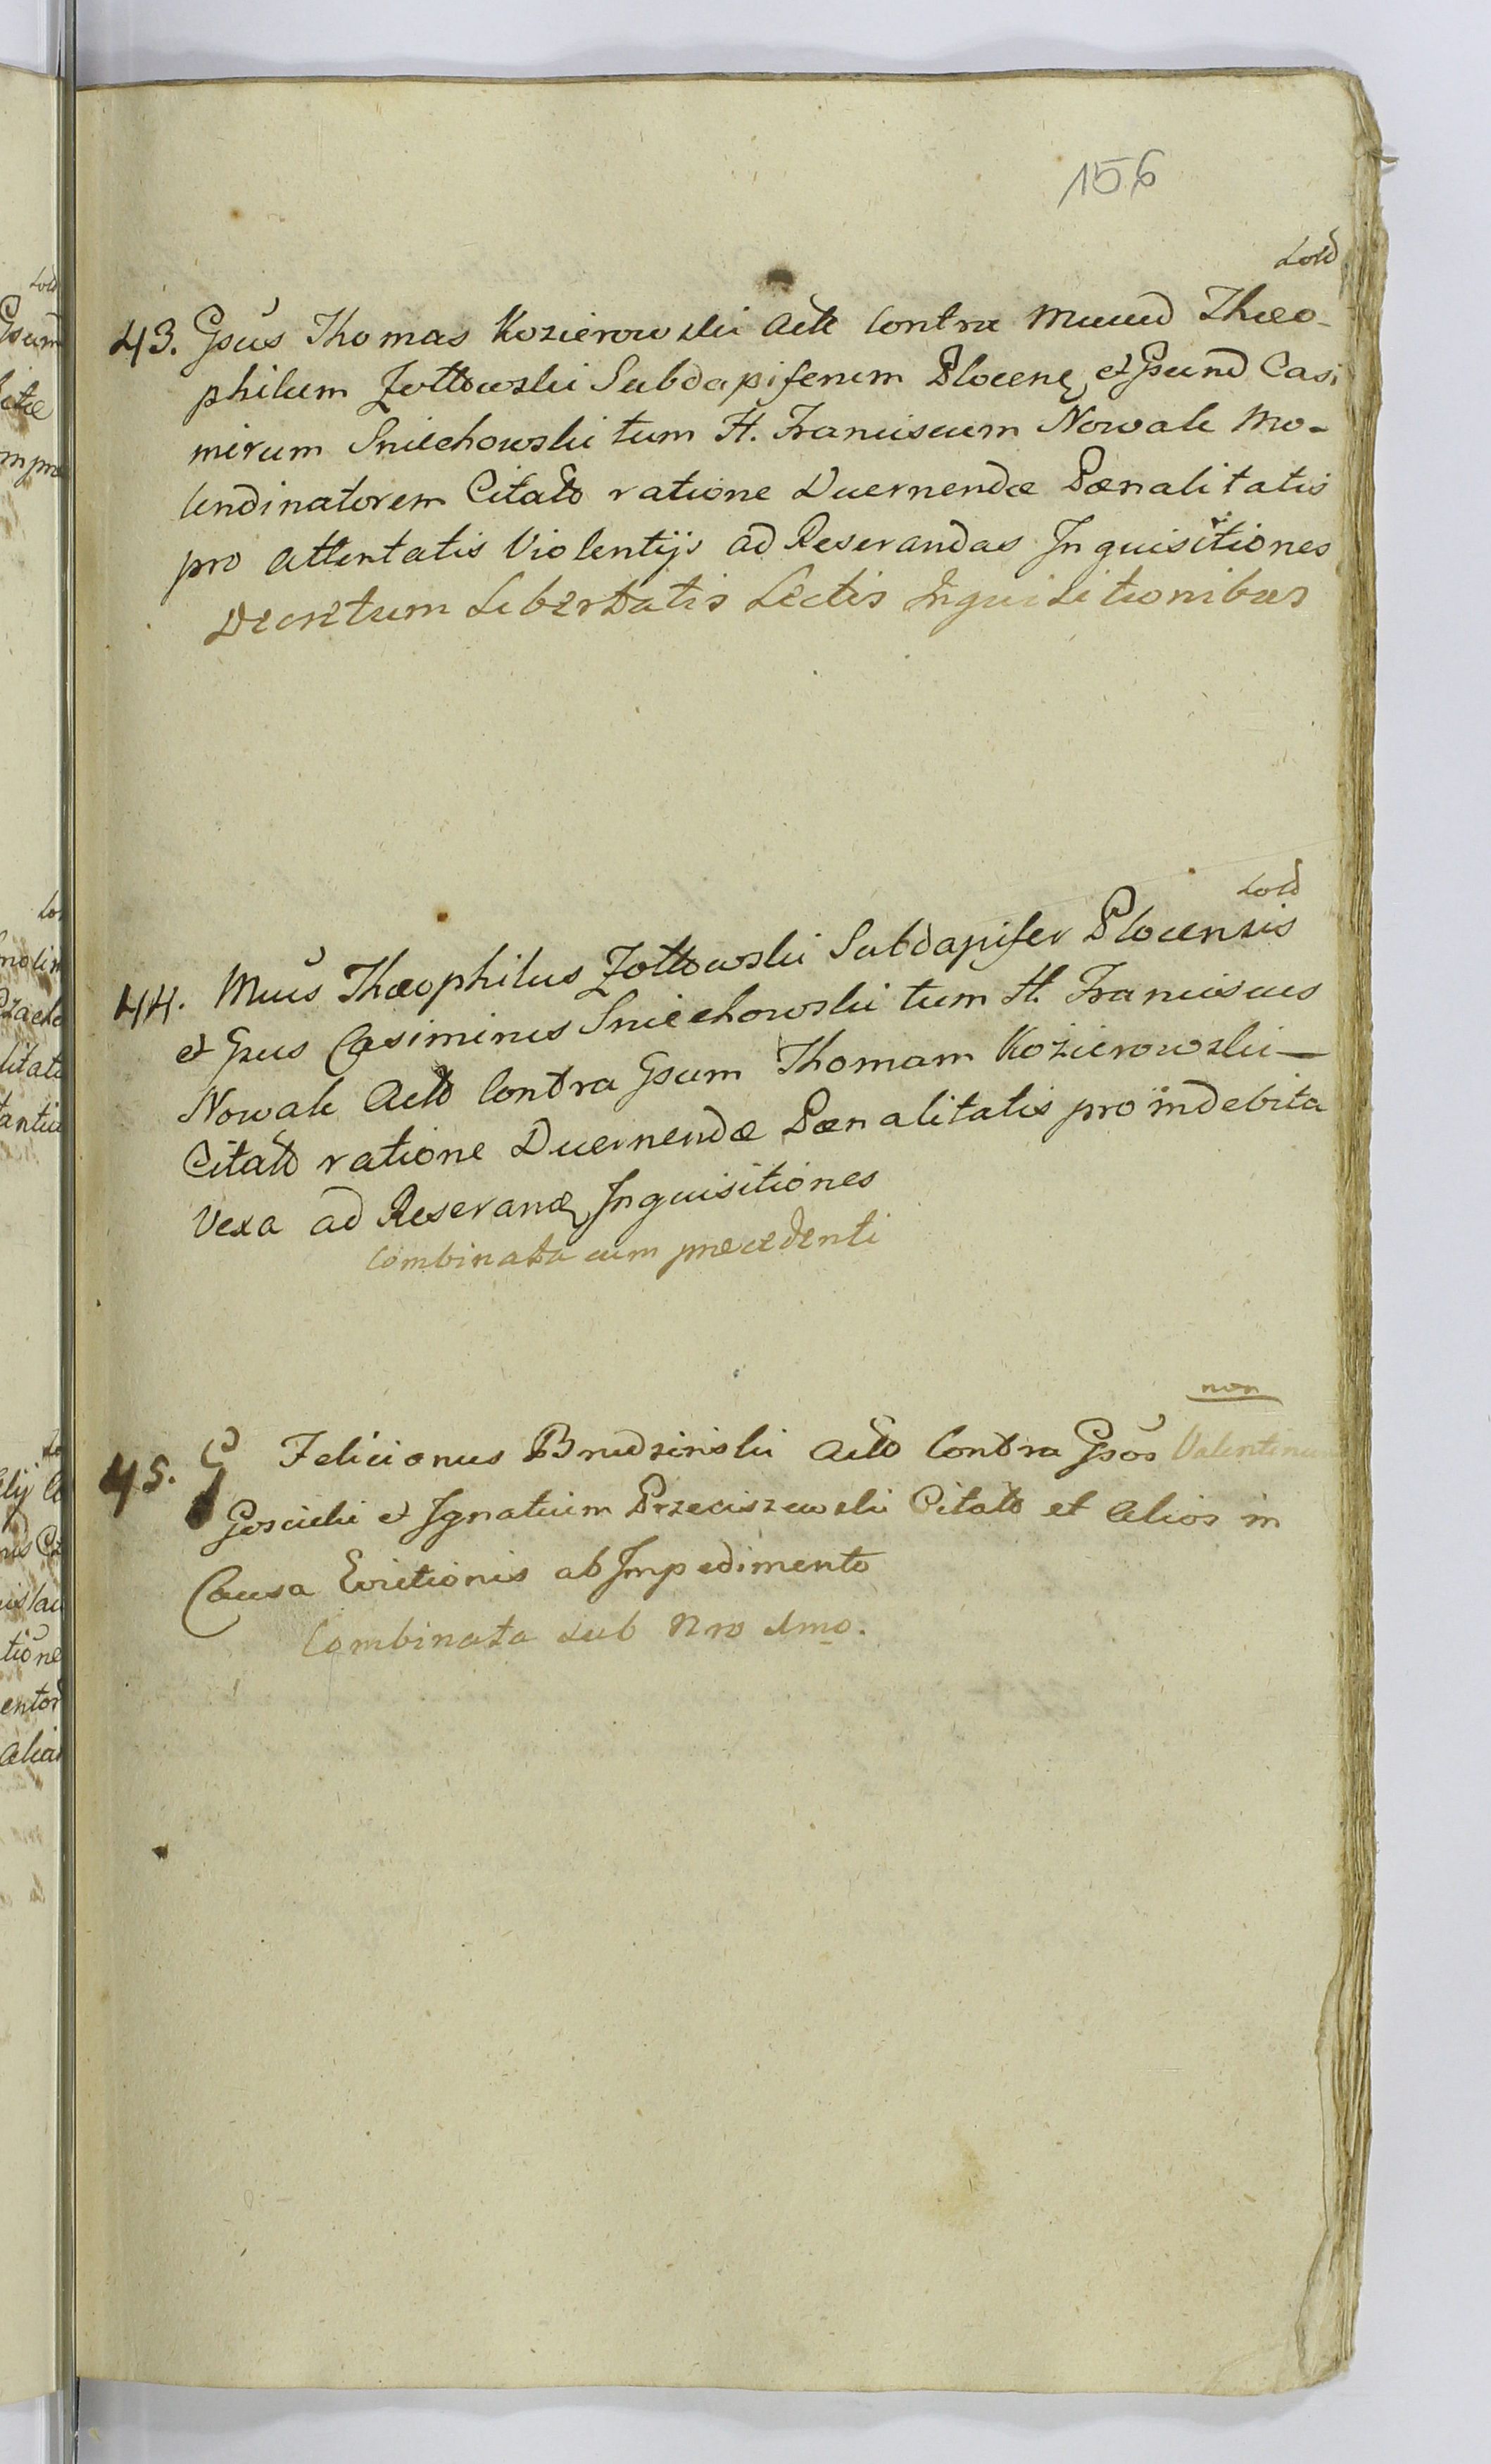 156
Sold
43. Gsus Thomas Kozierowski Acto Contra Mucud Theo-
philum Zołtowski Subdapiferum Plocenę et Gsund Casi
mirum Sniechowski tum H. Franciscum Nowak Mo-
lendinatorem Citato ratione Decernendæ Pænalitatis
pro attentatis Violentijs ad Reserandas Inquisitiones
Decretum Libertatis Lectis Inquisitionibus
Sold
44. Mcus Theophilus Zołtowski Subdapifer Plocensis
et Gsus Casimirus Sniechowski tum H. Franciscus
Nowak Acto Contra Gsum Thomam Kozierowski—
Citato ratione Decernendæ Pænalitatis pro indebita
Vexa ad Reserandę Inquisitiones
Combinata cum præcedenti
non
45. G Felicianus Brudzinski Acto Contra Gsos Valentinum
Goscicki et Ignatium Przeciszewski Citato et Alios in
Causa Evictionis ab Impedimento
Combinata sub Nro 1mo.